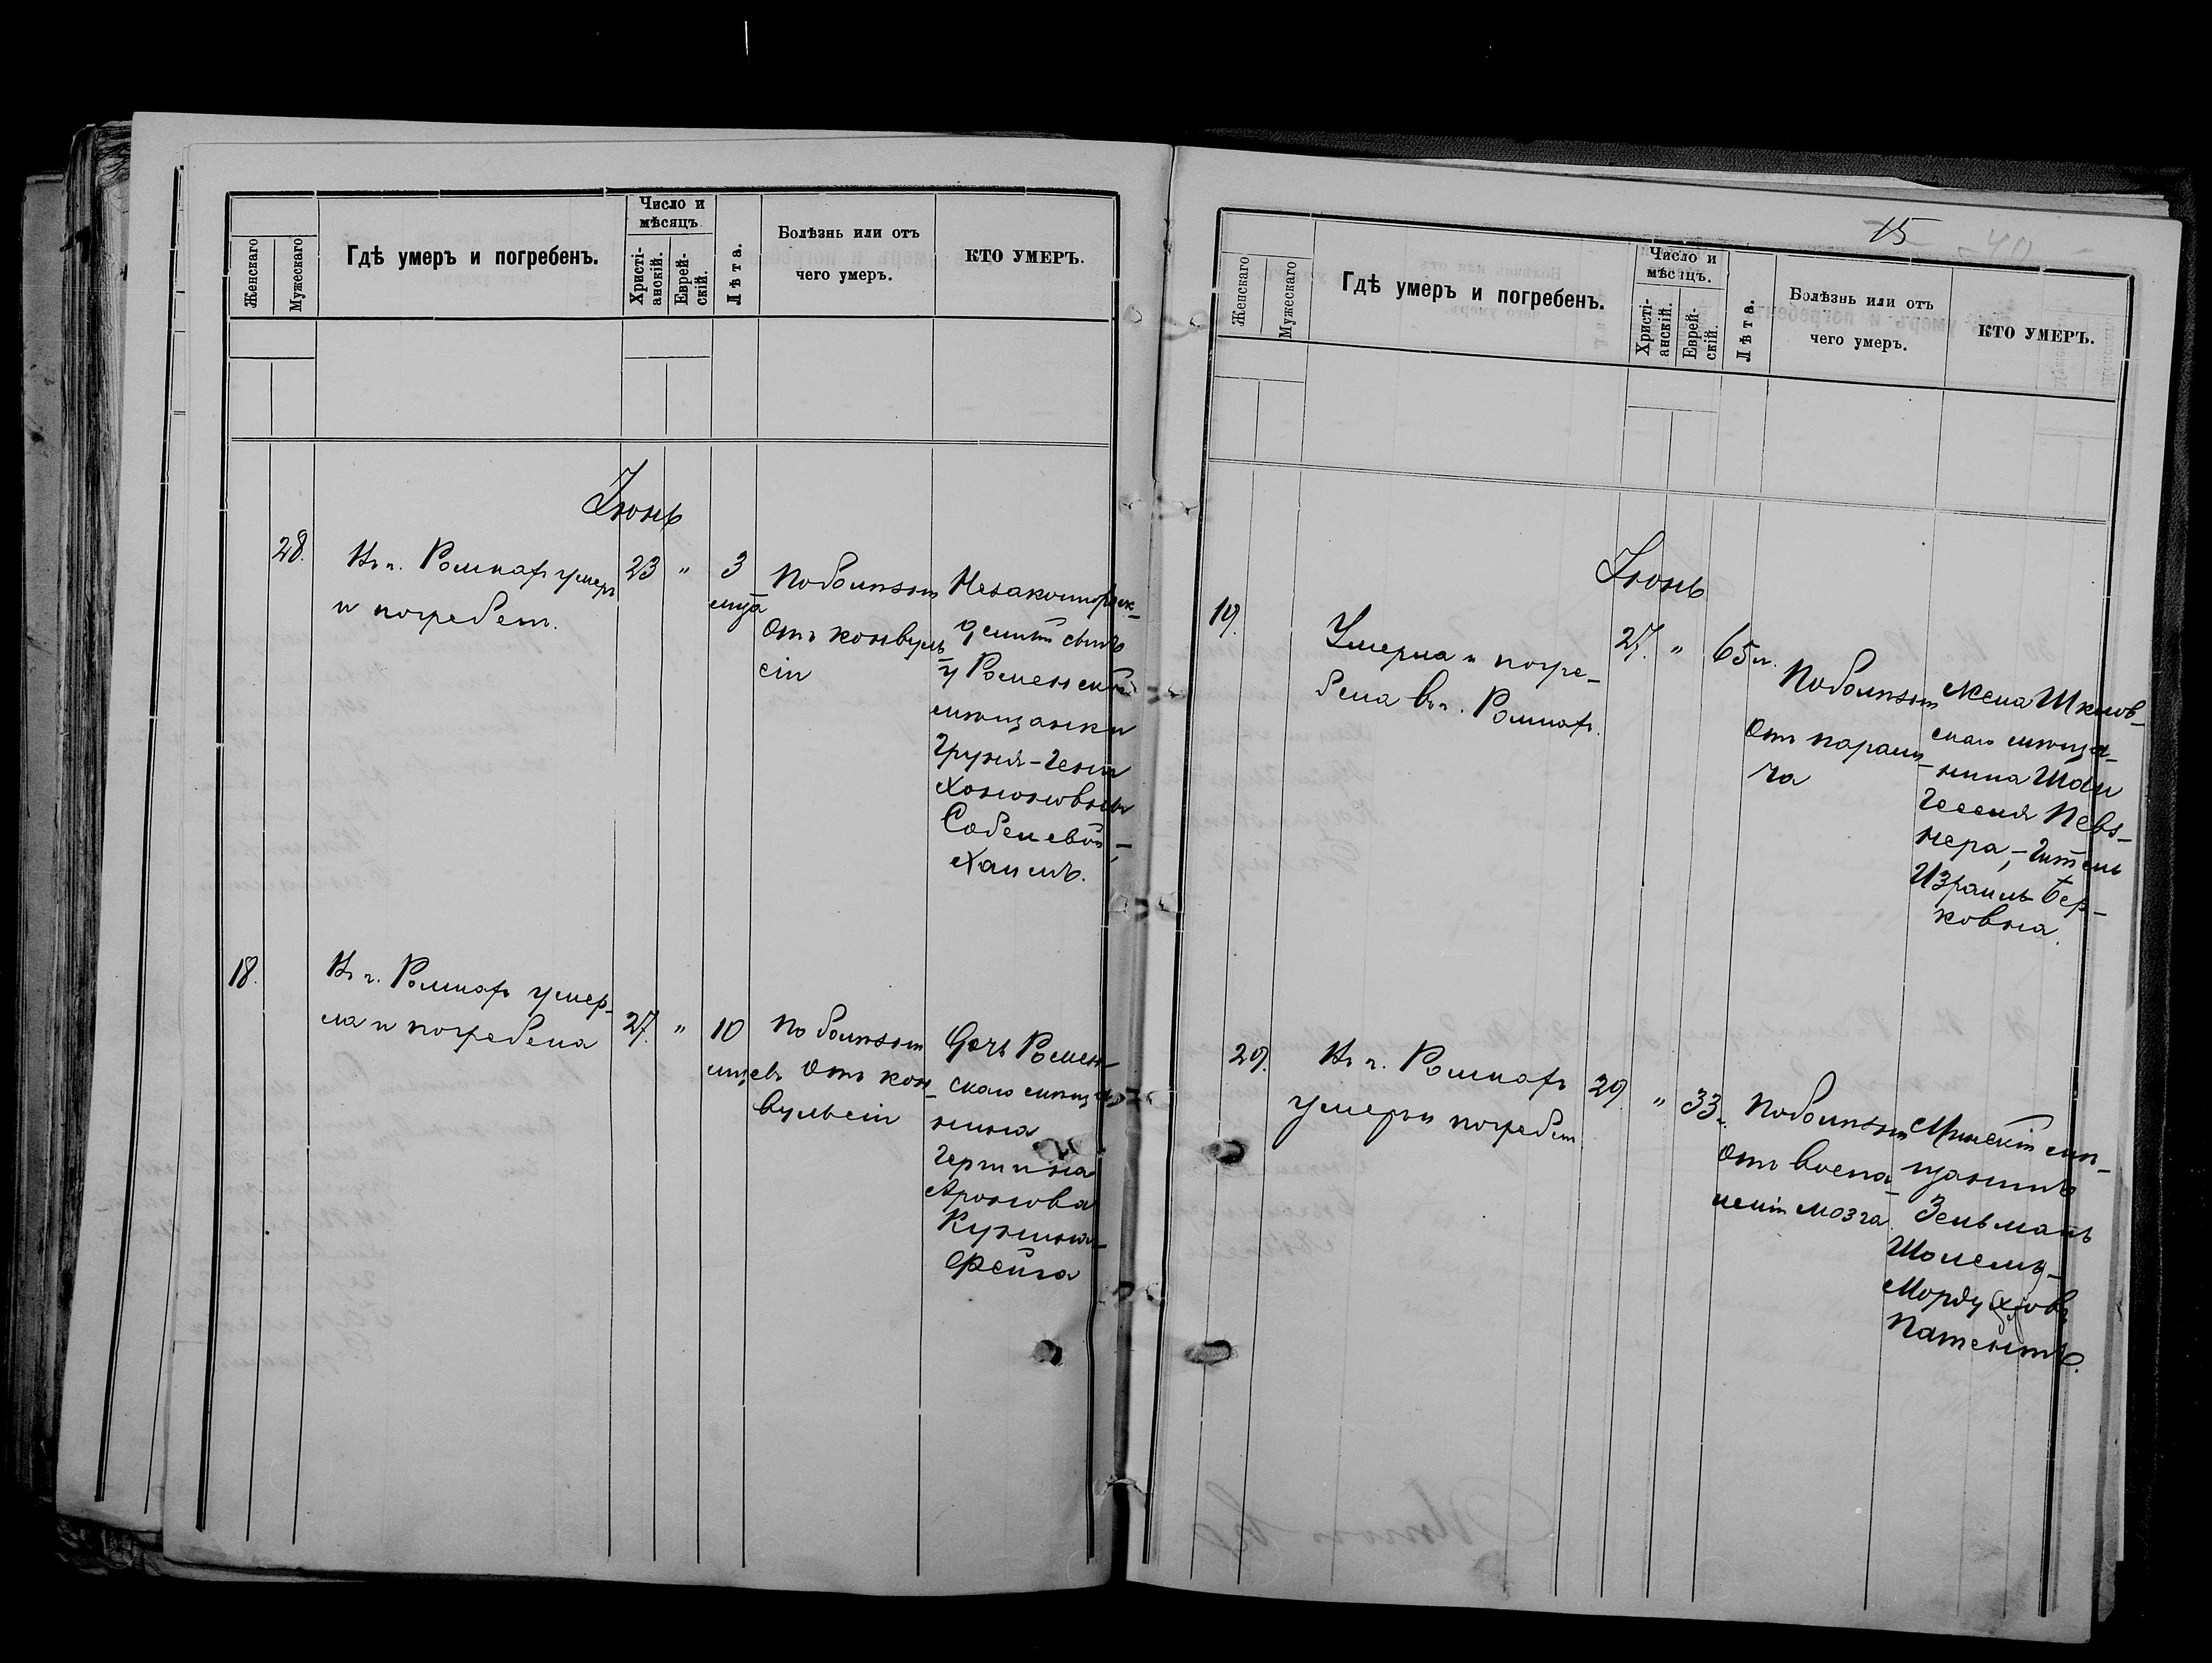 Женскаго
Мужескаго
Гдѣ умеръ и погребенъ.
Число и
мѣсяцъ
Христі-
анскій.
Еврей-
скій.
Лѣта.
Болѣзнь или отъ
чего умеръ.
КТО УМЕРЪ.
Іюнь
28.
Въ г. Ромнахъ умеръ
и погребенъ.
23
"
3
мѣца
По болѣзни
отъ конвуль-
сіи
Незаконорож-
денный сынъ
у Роменской
мѣщанки
Груня-Геня
Хононовны
Соболевой,-
Хаимъ.
18.
Въ г. Ромнахъ умер-
ла и погребена
27.
"
10
мѣцевъ
По болѣзни
отъ кон-
вульсіи
Дочь Ромен-
скаго мѣща-
нина
Гершина
Аронова
Фейга
15
Женскаго
Мужескаго
Гдѣ умеръ и погребенъ.
Число и
мѣсяцъ.
Христі-
анскій.
Еврей-
скій.
Лѣта.
Болѣзнь или отъ
чего умеръ.
КТО УМЕРЪ.
Іюнь
19.
Умерла и погре-
бена въ г. Ромнахъ.
27.
"
65 л.
По болѣзни
отъ парали-
ча
Жена Шклов-
скаго мѣща-
нина
Певз-
нера,-
Израиль-Бер-
ковна.
29.
Въ г. Ромнахъ
умеръ и погребенъ
29.
"
33
По болѣзни
отъ воспа-
ленія мозга.
Минскій мѣ-
щанинъ
Зельманъ
Шолемъ-
Мордуховъ
Патентъ.